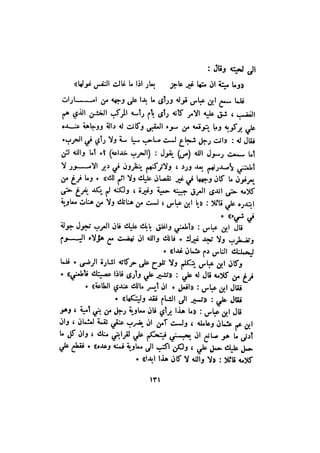 الى لحيته وقال :
«وما ميتة ان متها غير عاجز بعار اذا ما غالت النفس غولها»
فلما سمع ابن عباس قوله ورأى ما بدا على وجهه من امـــارات
الغضب ، شق عليه الامر كأنه رأى بأم رأسه المركب الخشن الذي هم
على بركوبه وما يتوقعه من سوء العقبى وكانت له دالة ووجاهة عنـــده
فقال له : «انت رجل شجاع لست صاحب سياسة ولا رأي في الحرب»
أما سمعت رسول الله (ص) يقول : (الحرب خداعة) ؟ أما والله لئن
أطعتني لأصدرنهم بعد ورد ، ولاتركنهم ينظرون في دبر الامـــور لا
يعرفون ما كان وجهها في غير نقصان عليك ولا اثم لك» • وما فرغ من
كلامه حتى اندى العرق جبينه حمية وغيرة ، ولكنه لم يكد يفرغ حتى
ابتدره علي قائلا : «يا ابن عباس ، لست من هناتك ولا من هنات معاوية
في شيء» •
قال ابن عباس : «أطعني واغلق بابك عليك فان العرب تجول جولة
وتضطرب ولا تجد غيرك • فانك والله ان نهضت مع هؤلاء اليـــوم
ليحملنك الناس دم عثمان غدا» •
وكان ابن عباس يتكلم ولا تلوح على حركاته اشارة الرضى • فلما
فرغ من كلامه قال له علي : «تشير علي وأرى فاذا عصيتك فأطعني» •
فقال ابن عباس : «افعل • ان أيسر مالك عندي الطاعة» •
فقال علي : «تسير الى الشام فقد وليتكها» •
قال ابن عباس : «ما هذا برأي فان معاوية رجل من بني أمية ، وهو
ابن عم عثمان وعامله ، ولست آمن ان يضرب عنقي نقمة لعثمان ، وان
أدنى ما هو صانع ان يحبسني فيتحكم علي لقرابتي منك ، وان كل ما
حمل عليك حمل علي ، ولكن اكتب الى معاوية فمنه وعده» • فقطع علي
كلامه قائلا : «لا والله لا كان هذا ابدا» •
١٣١